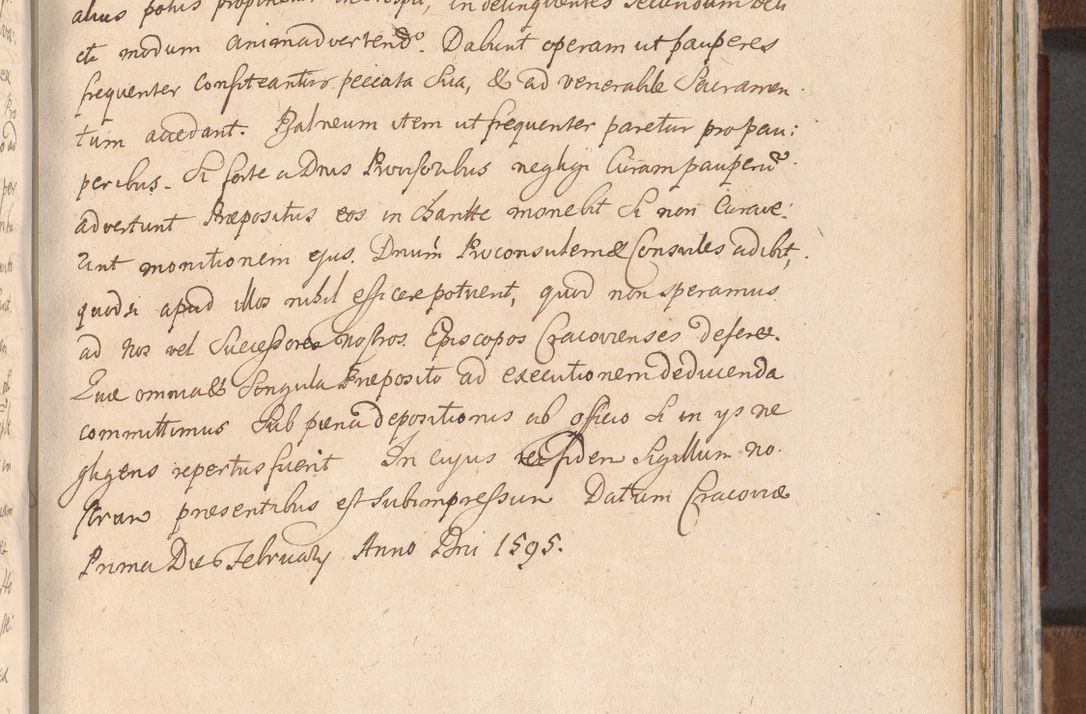 alius potus in delinquentes secundum deli
cti modum animadvertendo. Dabunt operam ut pauperes
frequenter Confiteantur peccata Sua, & ad venerabile Sacramen
tum accedant. Balneum item ut frequenter paretur pro pau:
peribus. Si forte a Dnis Provisoribus negligi Curam pauperū
advertunt Præpositus eos in Charitte monebit Si non Curave:
rint monitionem ejus. Dnum Proconsulem & Consules adibit,
quod si apud illos nihil efficere potuerit, quod non speramus
ad Nos vel Successores nostros Episcopos Cracovienses deferet.
Quæ omnia & Singula Præposito ad executionem deducenda
committimus Sub pœna depositionis ab officio Si in ys ne
gligens repertus fuerit In cujus rei fidem Sigillum no.
strum presentibus est Subimpressum Datum Cracoviæ
Prima Die February Anno Dni 1595.